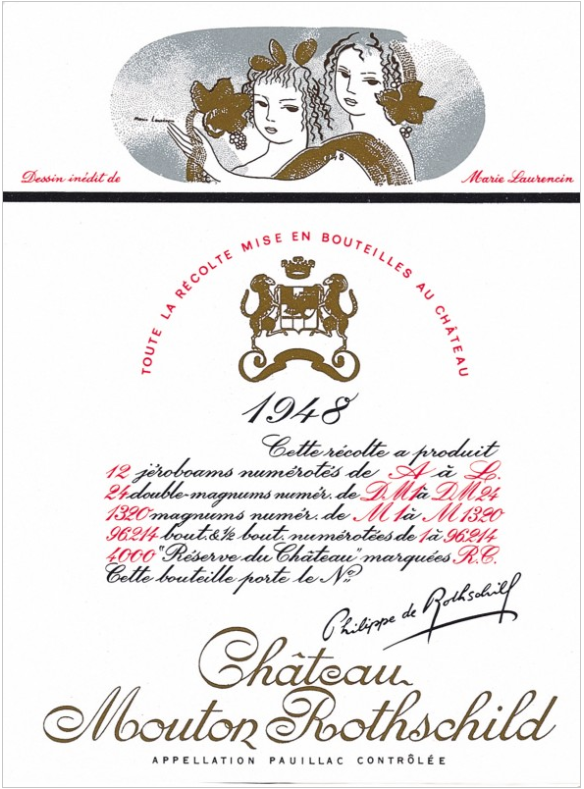 Marie Laurencin
1948
Dessin inédit de
Marie Laurencin
TOUTE LA RÉCOLTE MISE EN BOUTEILLES AU CHÂTEAU
1948
Cette récolte a produit
12 jéroboams numérotés de A à L.
24 double-magnums numér. de D.M1 à D.M24
1320 magnums numér. de M1 à M1320
96214 bout. & ½ bout. numérotées de 1 à 96214
4000 "Réserve du Château" marquées R.C.
Cette bouteille porte le Nº
Philippe de Rothschild
Château
Mouton Rothschild
APPELLATION PAUILLAC CONTRÔLÉE